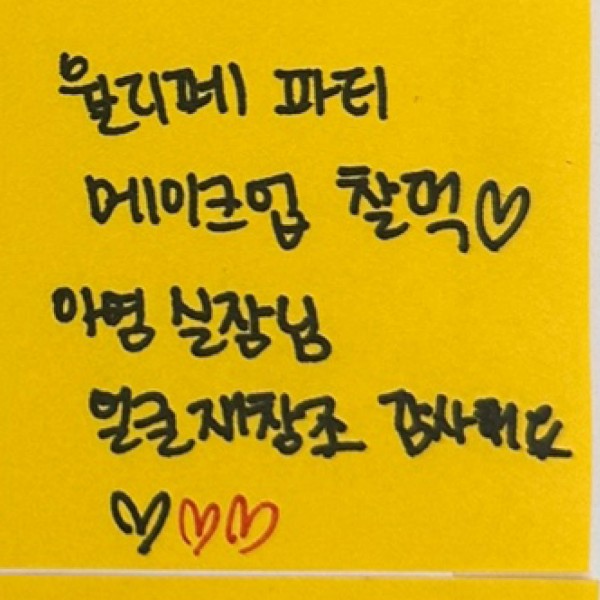 욜디페 파티
메이크업 찰떡♡
아영 실장님
얼굴재창조 감사해요
♡♡♡